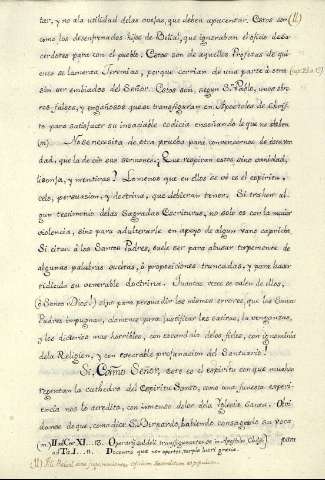 tar, y no a la utilidad de las ovejas, que deben apacentar. Estos son (11)
como los desenfrenados hijos de Belial, que ignoraban el oficio de Sa-
cerdotes para con el pueblo. Estos son de aquellos Profetas de qui-
enes se lamenta Jeremias, porque corrian de una parte à otra
sin ser embiados del Señor. Estos son, segun Sn. Pablo, unos obre-
ros falsos, y engañosos que se transfiguran en Apostoles de Chris-
to para satisfacer su insaciable codicia enseñando lo que no deben
(n). No se necesita de otra prueba para convencernos de esta ver-
dad, que la de oir sus sermones. ¿Que respiran estos, sino vanidad,
lisonja, y mentiras? Lo menos que en ellos se vé es el espiritu,
celo, persuasion, y doctrina, que debieran tener. Si trahen al-
gun testimonio de las Sagradas Escrituras, no solo es con la maior
violencia, sino para adulterarle en apoyo de algun raro capricho.
Si citan à los Santos Padres, suele ser para abusar torpemente de
algunas palabras sueltas, ò proposiciones truncadas, y para hacer
ridicula su venerable doctrina. Quantas veces se valen de ellos,
ò Señor Dios! sino para persuadir los mismos errores, que los Santos
Padres impugnan, ò menos para justificar las sátiras, la venganza,
y los dicterios mas horribles, con escandalo de los fieles, con ignominia
de la Religion, y con execrable profanacion del Santuario!
Si, Carmo Señor, este es el espiritu con que muchos
regentan la cathedra del Espiritu Santo, como una funesta experi-
encia nos lo acredita, con inmenso dolor de la Iglesia Santa. Olvi-
danse de que, como dice Sn. Bernardo, habiendo consagrado su voca
(n) II ad Cor. XI. 13. Operarii subdoli transfigurantes se in Apostolos Christi.
ad Tit. I. 11. Docentes quae non oportet turpis lucri gratia.